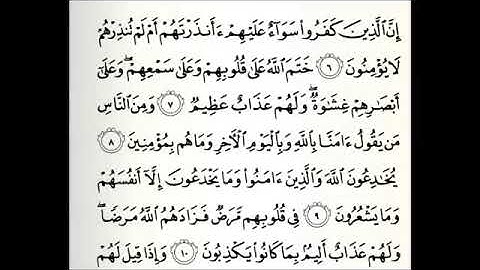 إِنَّ ٱلَّذِينَ كَفَرُوا۟ سَوَآءٌ عَلَيْهِمْ ءَأَنذَرْتَهُمْ أَمْ لَمْ تُنذِرْهُمْ
لَا يُؤْمِنُونَ ٦ خَتَمَ ٱللَّهُ عَلَىٰ قُلُوبِهِمْ وَعَلَىٰ سَمْعِهِمْ ۖ وَعَلَىٰٓ
أَبْصَـٰرِهِمْ غِشَـٰوَةٌ ۖ وَلَهُمْ عَذَابٌ عَظِيمٌ ٧ وَمِنَ ٱلنَّاسِ
مَن يَقُولُ ءَامَنَّا بِٱللَّهِ وَبِٱلْيَوْمِ ٱلْـَٔاخِرِ وَمَا هُم بِمُؤْمِنِينَ ٨
يُخَـٰدِعُونَ ٱللَّهَ وَٱلَّذِينَ ءَامَنُوا۟ وَمَا يَخْدَعُونَ إِلَّآ أَنفُسَهُمْ
وَمَا يَشْعُرُونَ ٩ فِى قُلُوبِهِم مَّرَضٌ فَزَادَهُمُ ٱللَّهُ مَرَضًا ۖ
وَلَهُمْ عَذَابٌ أَلِيمٌۢ بِمَا كَانُوا۟ يَكْذِبُونَ ١٠ وَإِذَا قِيلَ لَهُمْ